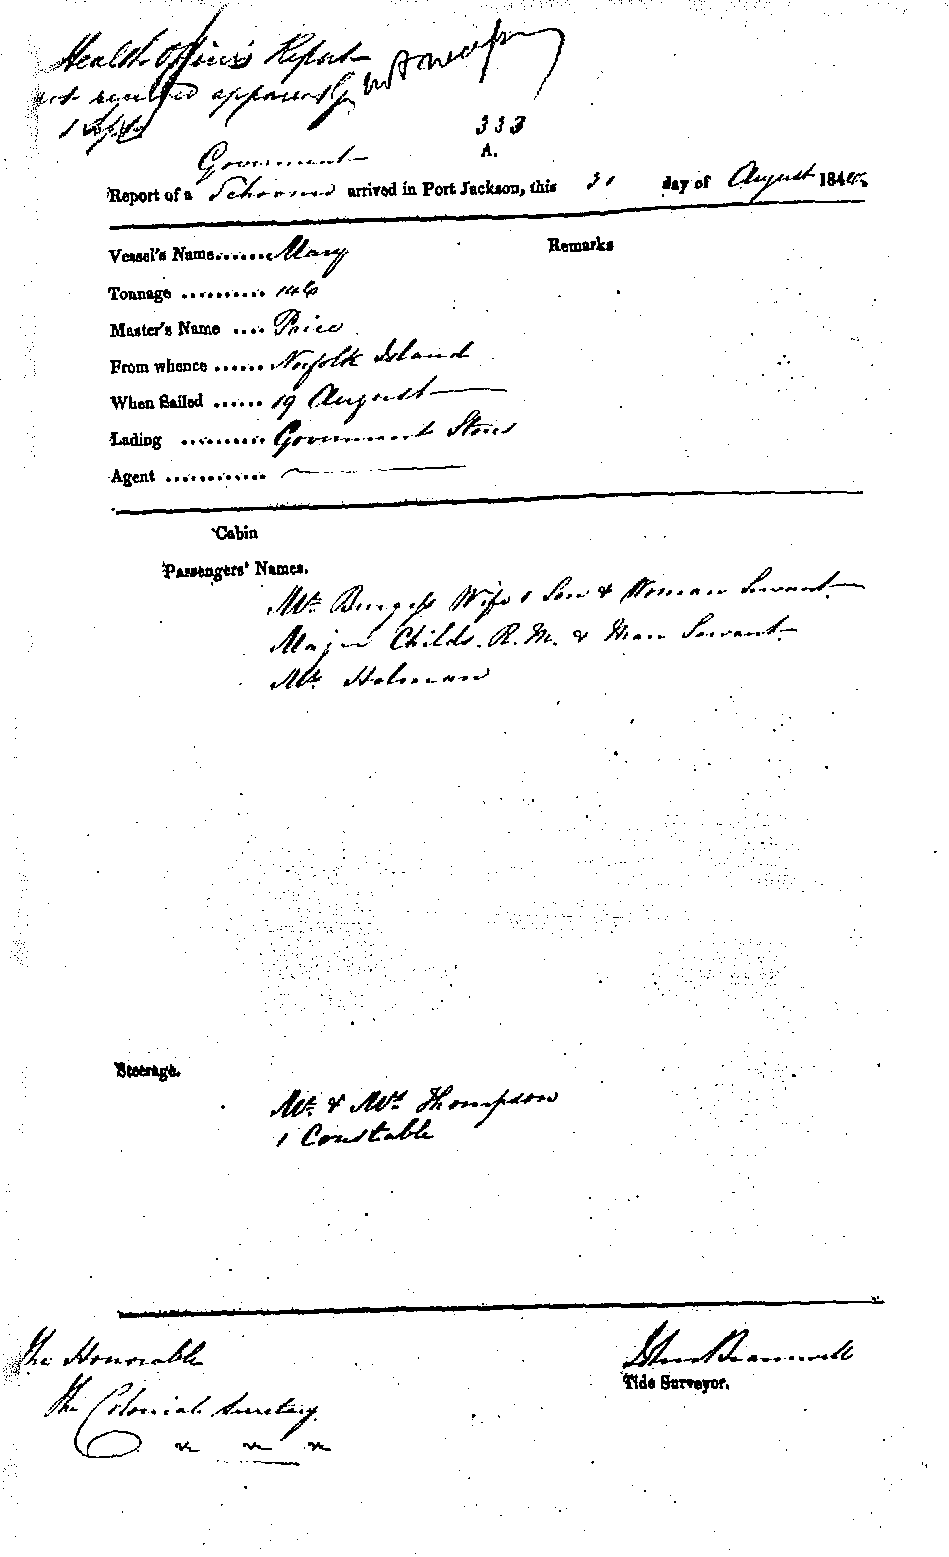 Health Officer's Report
not received apparently
1 Sept
333
A.
Government
Report of a Schooner arrived in Port Jackson, this 31 day of August 184
Vessel's Name....... Mary
Remarks
Tonnage .......... 146
Master's Name .... Price
From whence ...... Norfolk Island
When Sailed ...... 19 August
Lading .......... Government Stores
Agent ............
Cabin
Passengers' Names.
Mr. Burgess Wife & Son & Woman Servant
Major Childs. R.M. & Man Servant
Mr. Holman
Steerage.
Mr. & Mrs Thompson
1 Constable
The Honorable
The Colonial Secretary
John Bramwell
Tide Surveyor.